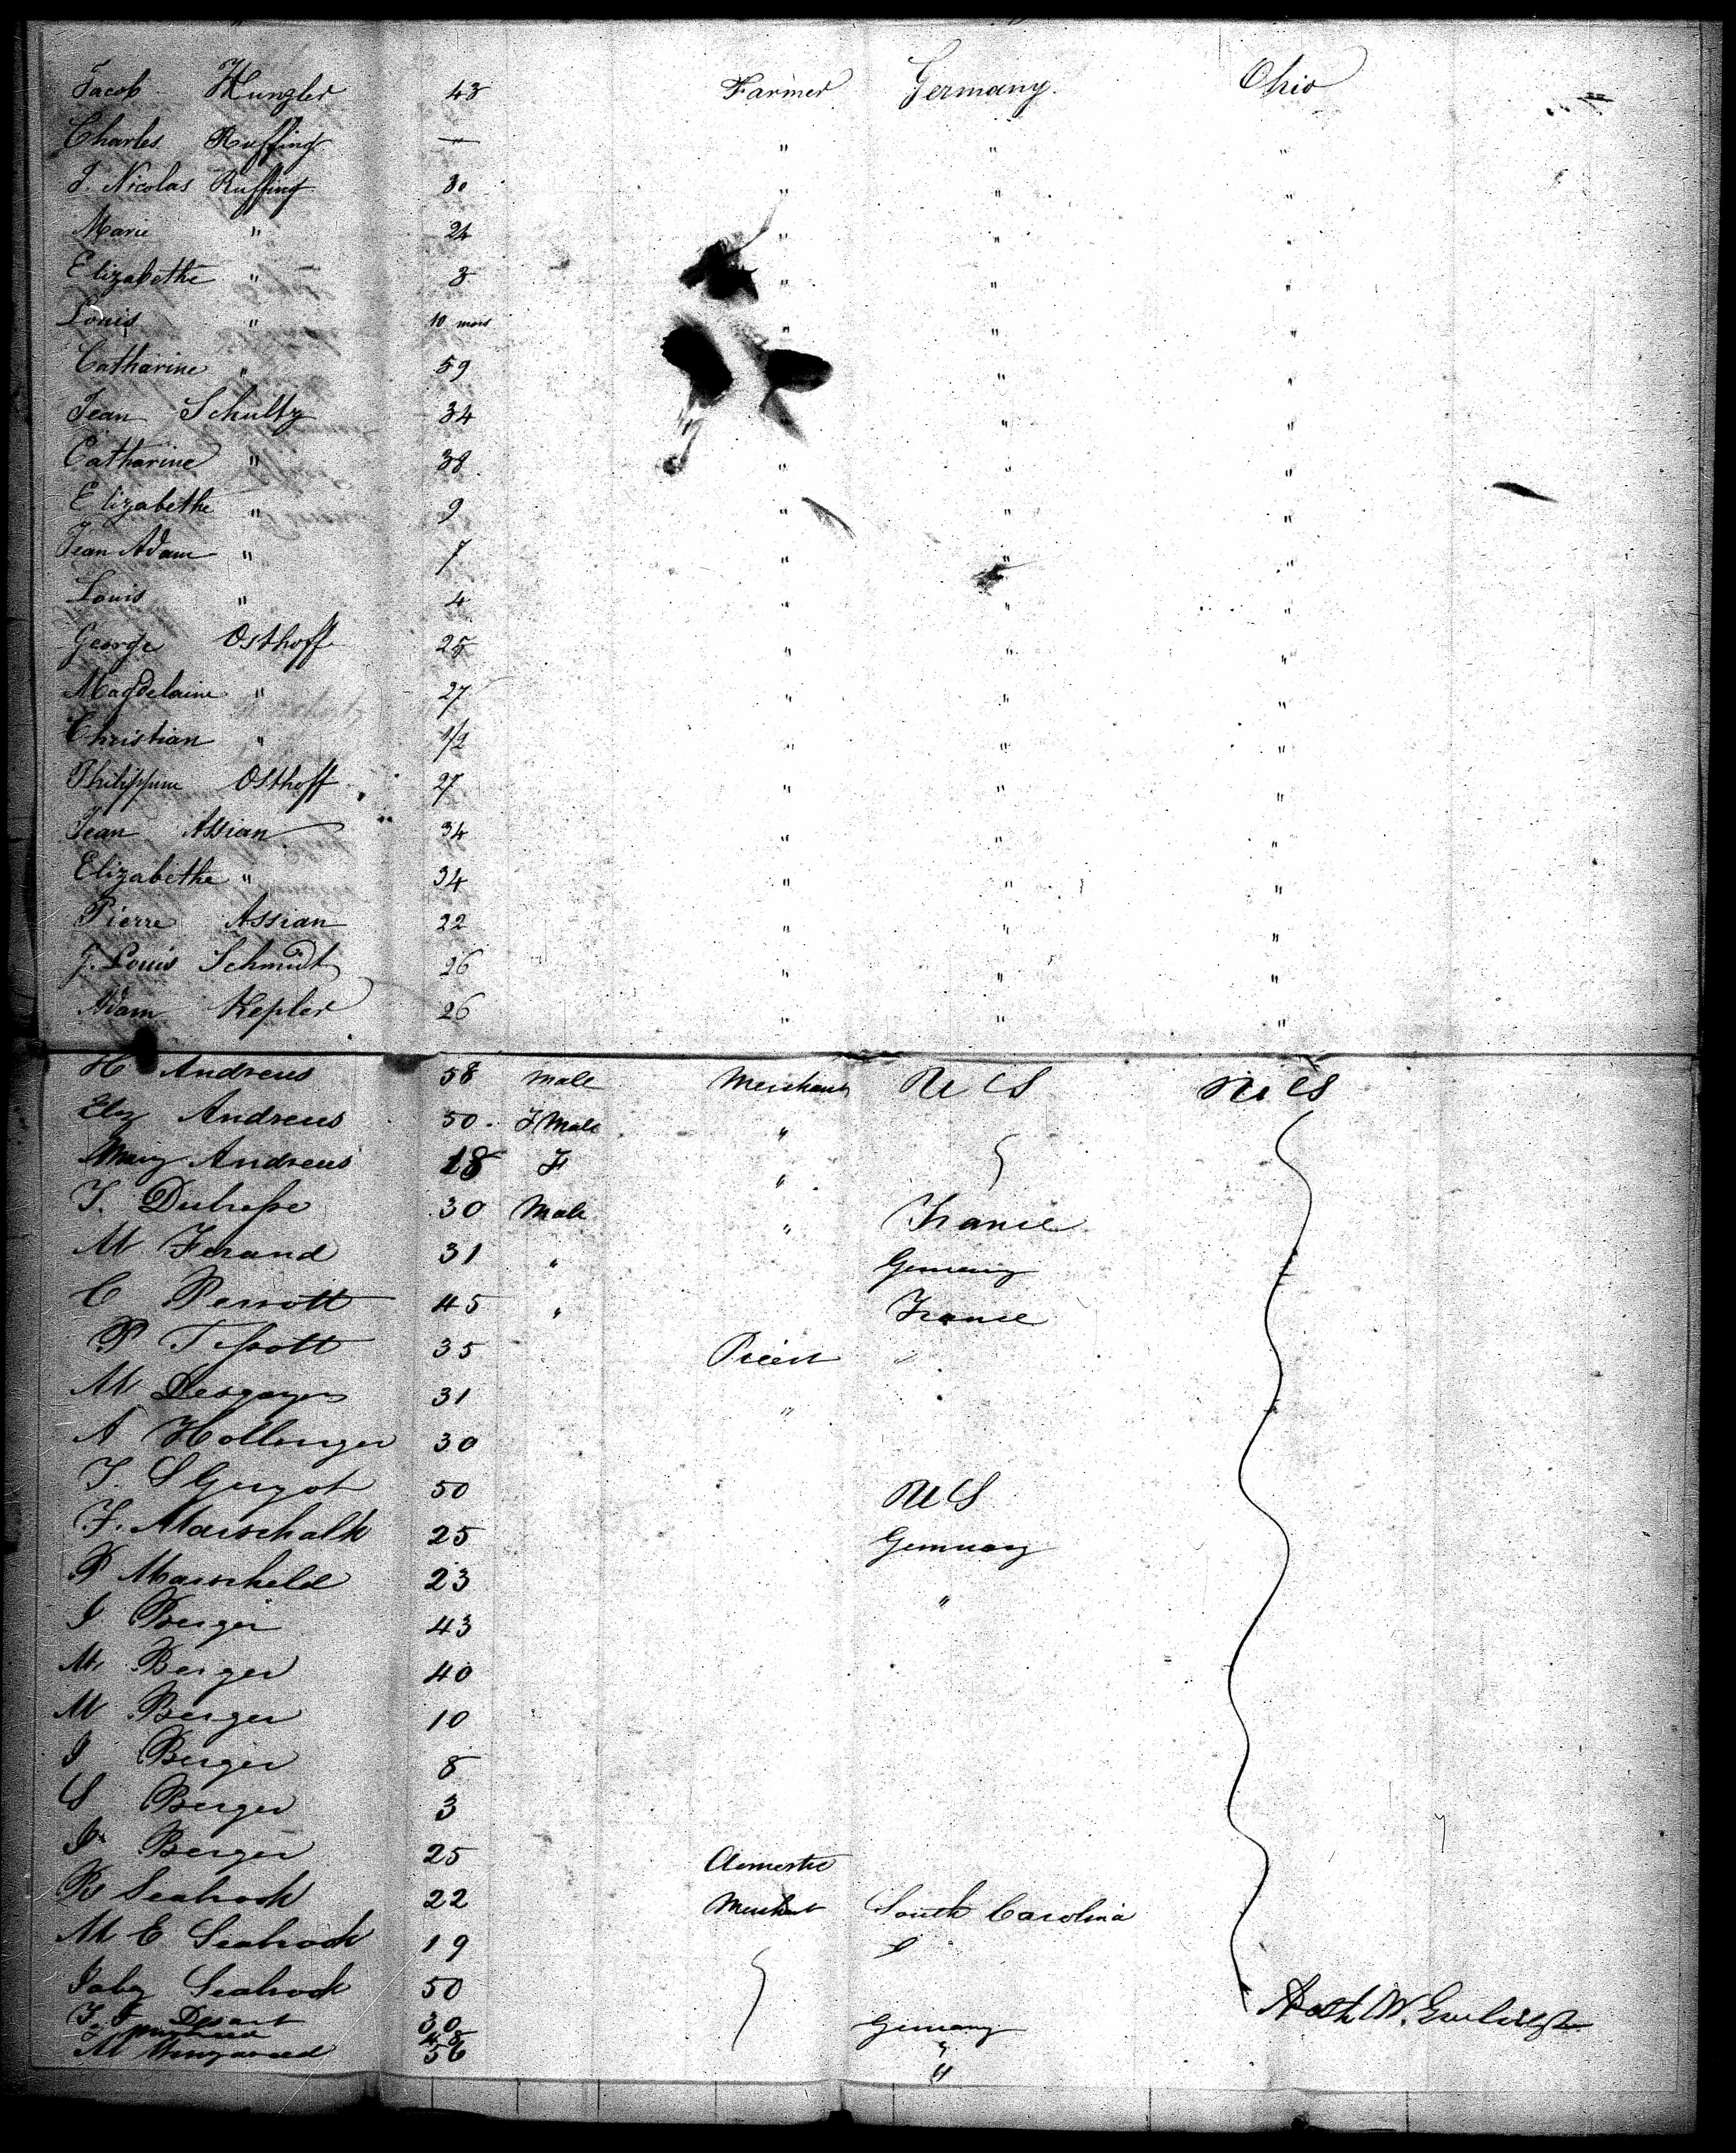 Jacob Hunzler 43 Farmer Germany Ohio
Charles Ruffing — " " "
J. Nicolas Ruffing 30 " " "
Marie " 24 " " "
Elizabethe " 3 " " "
Louis " 10 mos " " "
Catharine " 59 " "
Jean Schultz 34 " "
Catharine " 38 " " "
Elizabethe " 9 " " "
Jean Adam " 7 " " "
Louis " 4 " " "
George Osthoff 25 " " "
Magdelaine " 27 " " "
Christian " 1/2 " " "
Osthoff 27 " " "
Jean Assian 34 " " "
Elizabethe " 34 " " "
Pierre Assian 22 " " "
J. Louis Schmidt 26 " " "
Adam Kepler 26 " " "
H Andreus 58 Male Merchant U S U S
Eliz Andreus 50 F Male "
Mary Andreus 18 F "
30 Male " France
M Ferand 31 " Germany
C Perrott 45 " France
P Tissott 35 Priest "
M 31 "
A Hollinger 30
50 U S
F. Marschalk 25 Germany
P Marscheld 23 "
J Berger 43
M Berger 40
M Berger 10
J Berger 8
S Berger 3
Berger 25 Domestic
Seabrook 22 Merchant South Carolina
M E Seabrook 19
Seabrook 50
30 Germany
M 56 "